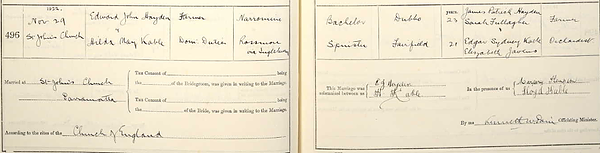 1952.
Nov 29 Edward John Hayden Farmer Narromine
496 St John's Church
Hilda May Kable Dom. Duties Rossmore
via Ingleburn
Bachelor Dubbo years 23 James Patrick Hayden Farmer
Sarah Fullagher
Spinster Fairfield 21 Edgar Sydney Kable Orchardist
Elizabeth
Married at St John's Church
Parramatta
The Consent of being
the of the Bridegroom, was given in writing to the Marriage.
The Consent of being
the of the Bride, was given in writing to the Marriage.
According to the rites of the Church of England
This Marriage was solemnized between us
E J Hayden
H M Kable
In the presence of us
Lloyd Kable
By me Officiating Minister.